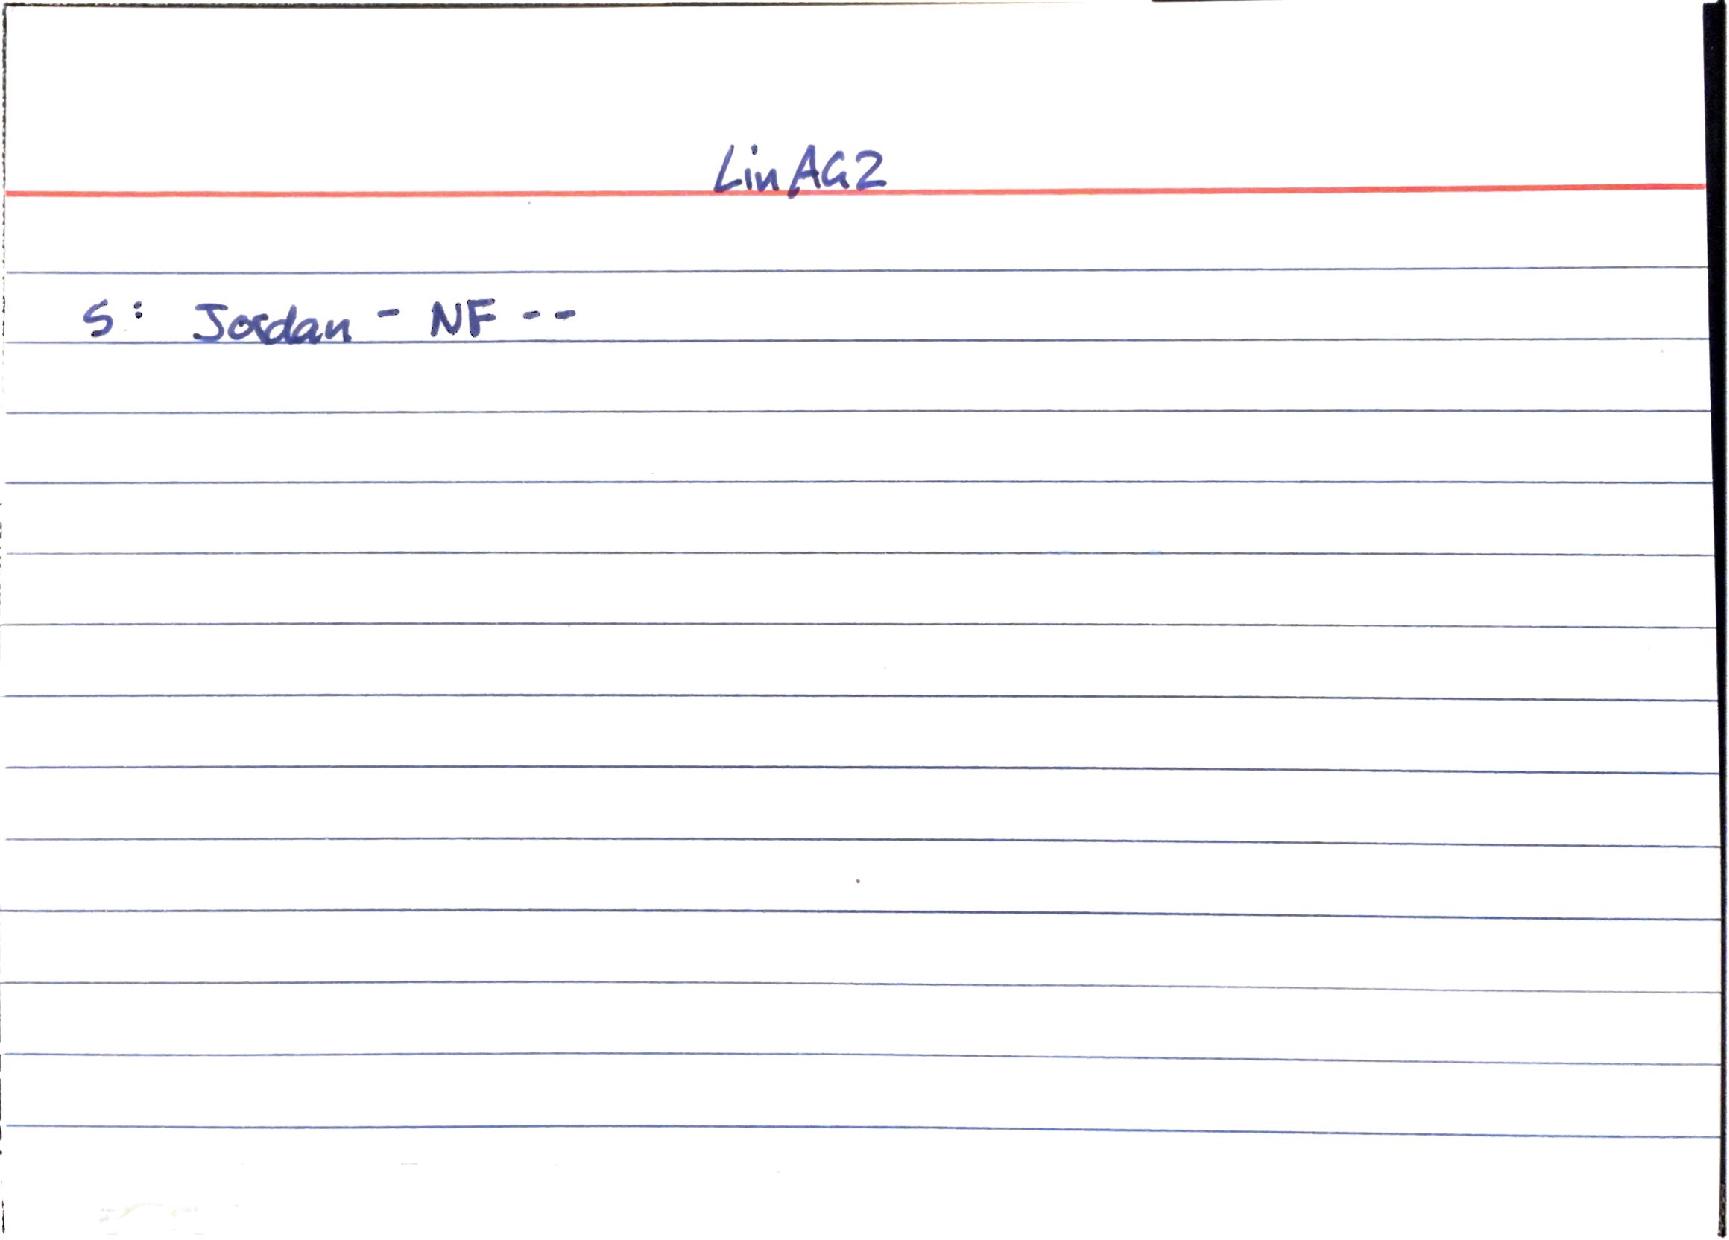 LinAG2
S: Jordan - NF --